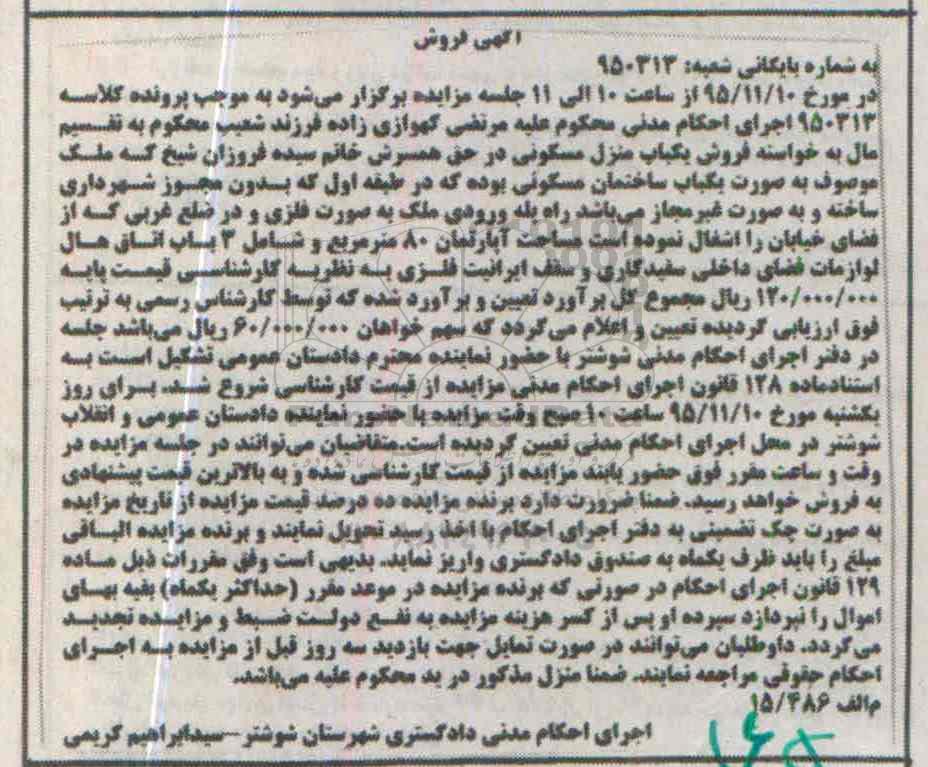 آگهی فروش
به شماره بایگانی شعبه: ۹۵۰۳۱۳
در مورخ ۹۵/۱۱/۱۰ از ساعت ۱۰ الی ۱۱ جلسه مزایده برگزار می‌شود به موجب پرونده کلاسه
۹۵۰۳۱۳ اجرای احکام مدنی محکوم علیه مرتضی کهوازی زاده فرزند شعیب محکوم به تقسیم
مال به خواسته فروش یکباب منزل مسکونی در حق همسرش خانم سیده فروزان شیخ که ملک
موصوف به صورت یکباب ساختمان مسکونی بوده که در طبقه اول که بدون مجوز شهرداری
ساخته و به صورت غیرمجاز می‌باشد راه پله ورودی ملک به صورت فلزی و در ضلع غربی که از
فضای خیابان را اشغال نموده است مساحت آپارتمان ۸۰ مترمربع و شامل ۳ باب اتاق هال
لوازمات فضای داخلی سفیدکاری و سقف ایرانیت فلزی به نظریه کارشناسی قیمت پایه
۱۲۰/۰۰۰/۰۰۰ ریال مجموع کل برآورد تعیین و برآورد شده که توسط کارشناس رسمی به ترتیب
فوق ارزیابی گردیده تعیین و اعلام می‌گردد که سهم خواهان ۶۰/۰۰۰/۰۰۰ ریال می‌باشد جلسه
در دفتر اجرای احکام مدنی شوشتر با حضور نماینده محترم دادستان عمومی تشکیل است به
استنادماده ۱۲۸ قانون اجرای احکام مدنی مزایده از قیمت کارشناسی شروع شد. برای روز
یکشنبه مورخ ۹۵/۱۱/۱۰ ساعت ۱۰ صبح وقت مزایده با حضور نماینده دادستان عمومی و انقلاب
شوشتر در محل اجرای احکام مدنی تعیین گردیده است.متقاضیان می‌توانند در جلسه مزایده در
وقت و ساعت مقرر فوق حضور یابند مزایده از قیمت کارشناسی شده و به بالاترین قیمت پیشنهادی
به فروش خواهد رسید. ضمنا ضرورت دارد برنده مزایده ده درصد قیمت مزایده از تاریخ مزایده
به صورت چک تضمینی به دفتر اجرای احکام با اخذ رسید تحویل نمایند و برنده مزایده الباقی
مبلغ را باید ظرف یکماه به صندوق دادگستری واریز نماید. بدیهی است وفق مقررات ذیل ماده
۱۲۹ قانون اجرای احکام در صورتی که برنده مزایده در موعد مقرر (حداکثر یکماه) بقیه بهای
اموال را نپردازد سپرده او پس از کسر هزینه مزایده به نفع دولت ضبط و مزایده تجدید
می‌گردد. داوطلبان می‌توانند در صورت تمایل جهت بازدید سه روز قبل از مزایده به اجرای
احکام حقوقی مراجعه نمایند. ضمنا منزل مذکور در ید محکوم علیه می‌باشد.
م‌الف ۱۵/۴۸۶
اجرای احکام مدنی دادگستری شهرستان شوشتر–سیدابراهیم کریمی